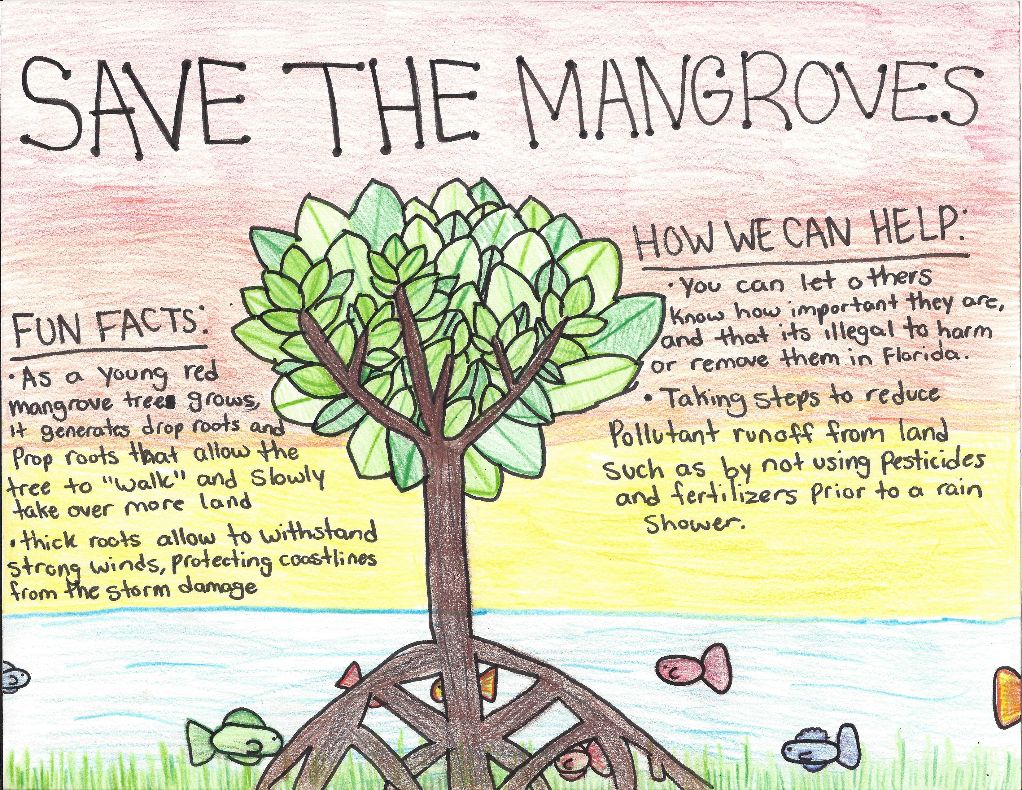 SAVE THE MANGROVES
FUN FACTS:
• As a young red
mangrove trees grows,
it generates drop roots and
Prop roots that allow the
tree to "walk" and slowly
take over more land
• thick roots allow to withstand
strong winds, protecting coastlines
from the storm damage
HOW WE CAN HELP:
• You can let others
know how important they are,
and that its illegal to harm
or remove them in Florida.
• Taking steps to reduce
Pollutant runoff from land
such as by not using pesticides
and fertilizers prior to a rain
shower.